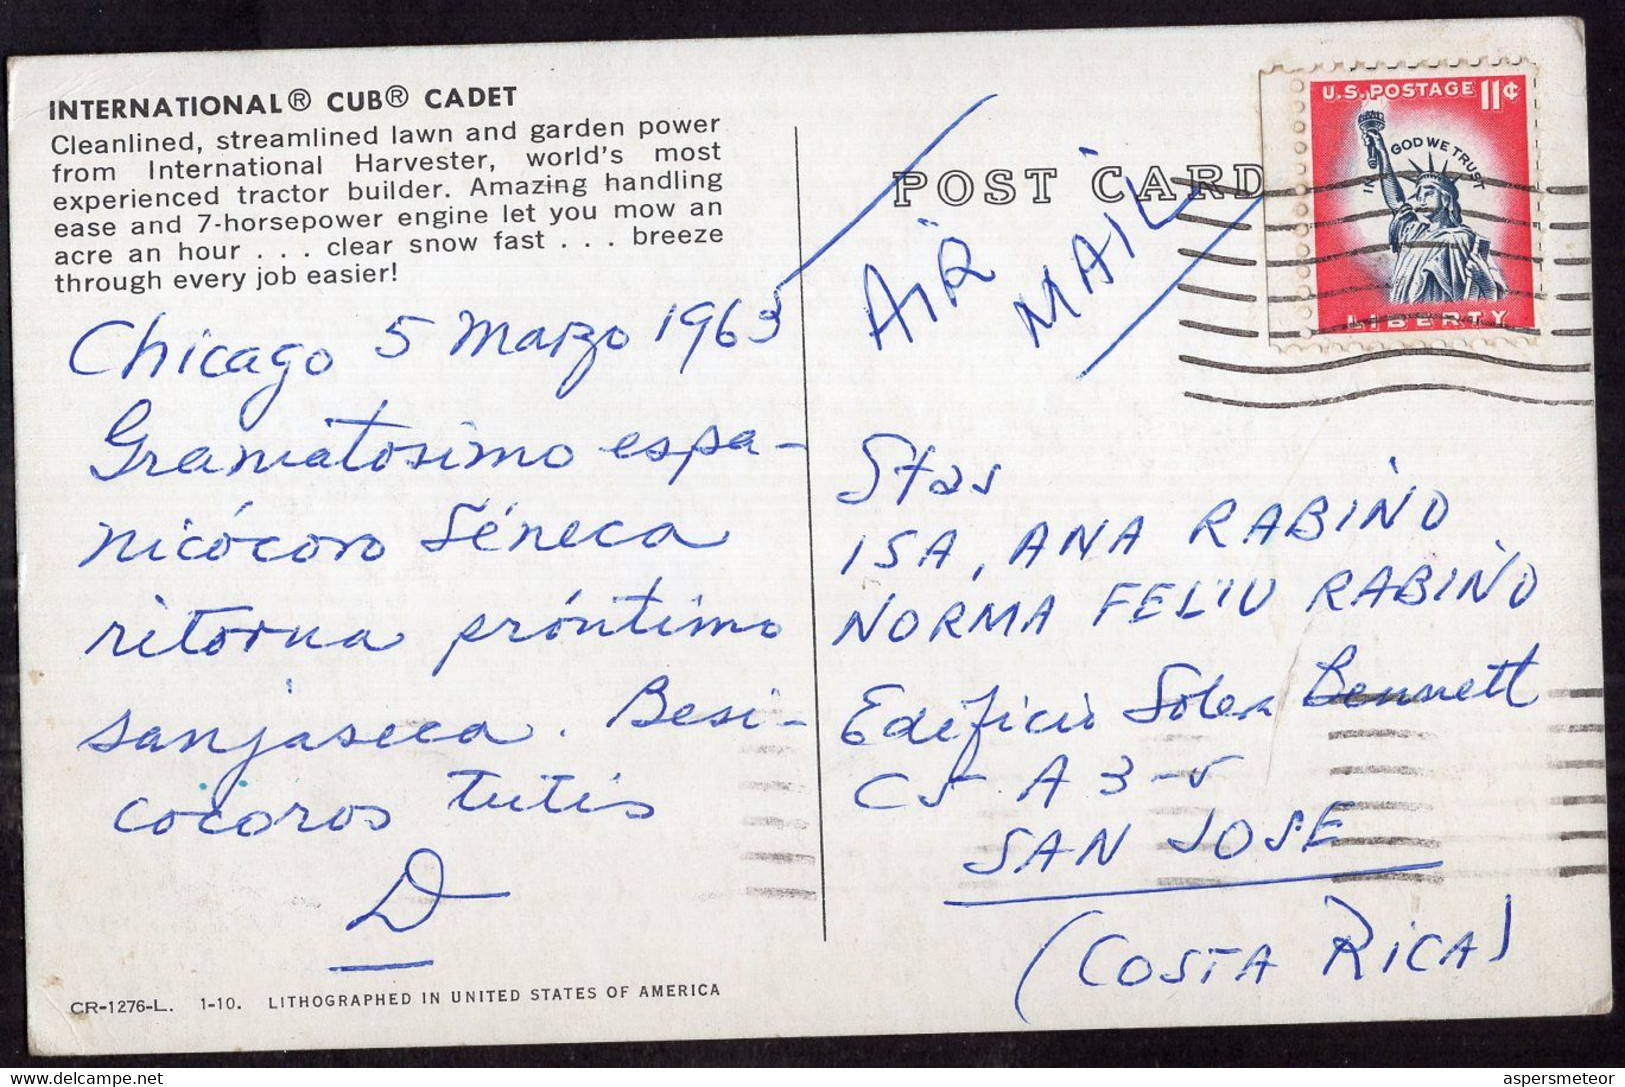 INTERNATIONAL® CUB® CADET
Cleanlined, streamlined lawn and garden power
from International Harvester, world's most
experienced tractor builder. Amazing handling
ease and 7-horsepower engine let you mow an
acre an hour . . . clear snow fast . . . breeze
through every job easier!
Chicago 5 Marzo 1963
espa-
nicócoro Séneca
ritorna próntimo
sanjaseca. Besi-
cocoros tutis
D
CR-1276-L. 1-10. LITHOGRAPHED IN UNITED STATES OF AMERICA
POST CARD
AIR
MAIL
U.S. POSTAGE 11¢
IN GOD WE TRUST
LIBERTY
Stas
ISA, ANA RABIÑO
NORMA FELIU RABIÑO
Edificio Solera Bennett
A 3-5
SAN JOSE
(COSTA RICA)
aspersmeteor
www.delcampe.net